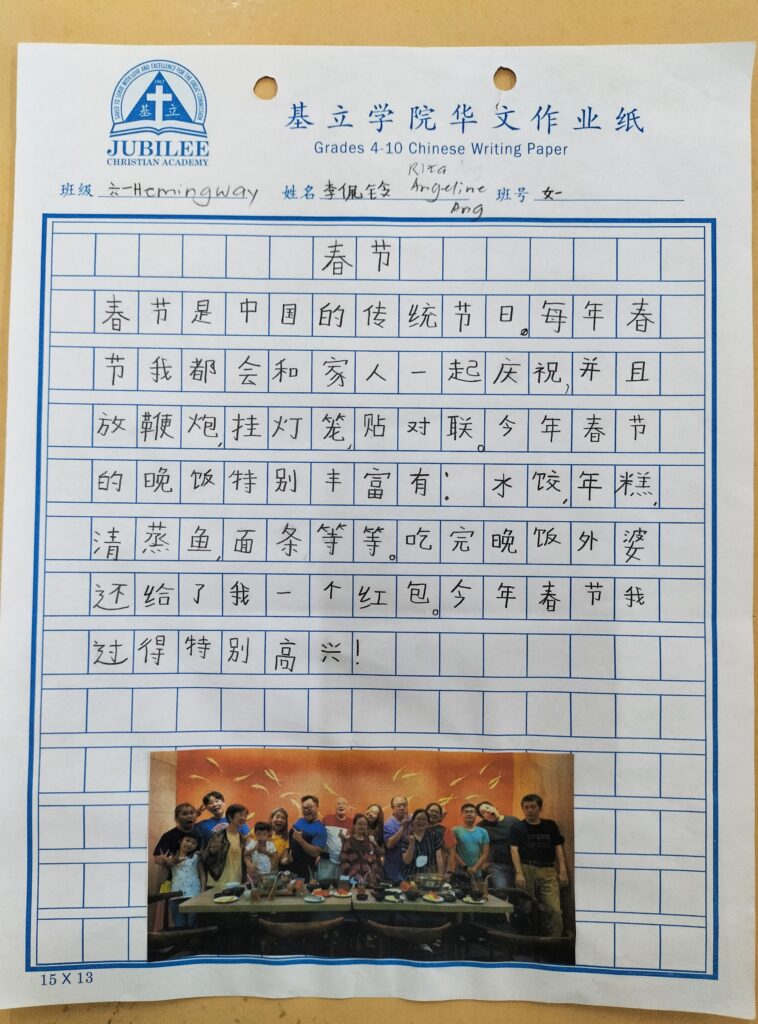 SAVED TO SERVE WITH LOVE AND EXCELLENCE FOR THE GREAT COMMISSION
1967
基立
JUBILEE
CHRISTIAN ACADEMY
基立学院华文作业纸
Grades 4-10 Chinese Writing Paper
班级 六一Hemingway 姓名 李佩铃 Rita Angeline Ang 班号 女一
春节
春节是中国的传统节日。每年春
节我都会和家人一起庆祝,并且
放鞭炮,挂灯笼,贴对联。今年春节
的晚饭特别丰富有:水饺,年糕,
清蒸鱼,面条等等。吃完晚饭外婆
还给了我一个红包。今年春节我
过得特别高兴!
15 X 13